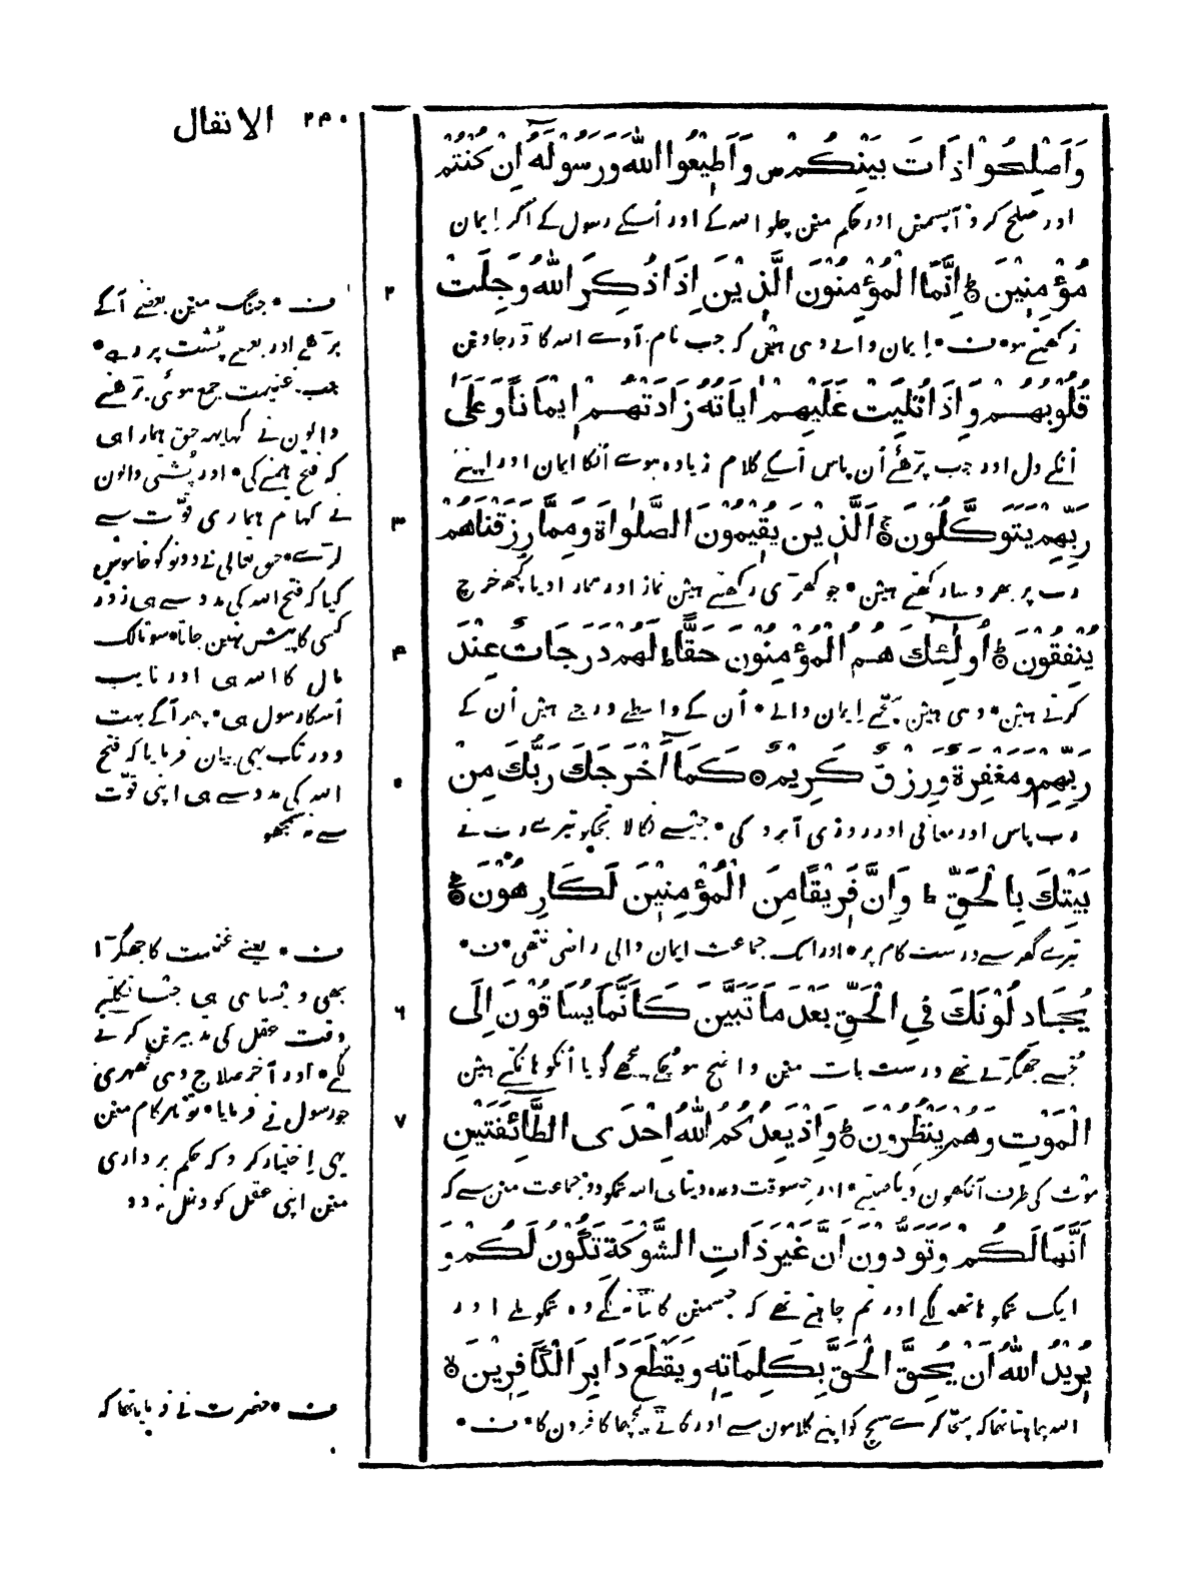 الانفال ۲۴۰
وَاَصْلِحُوْا ذَاتَ بَيْنِكُمْ ص وَاَطِيْعُوا اللّٰهَ وَرَسُوْلَهٗٓ اِنْ كُنْتُمْ
اور صلح کرو آپسمین اور حکم مین چلو اللہ کے اور اُسکے رسول کے اگر اِیمان
مُؤْمِنِيْنَ ۲ اِنَّمَا الْمُؤْمِنُوْنَ الَّذِيْنَ اِذَا ذُكِرَ اللّٰهُ وَجِلَتْ
رکھتے ہو * ف * اِیمان والے وہی ہین کہ جب نام آوے اللہ کا ڈر جاوین
قُلُوْبُهُمْ وَاِذَا تُلِيَتْ عَلَيْهِمْ اٰيَاتُهٗ زَادَتْهُمْ اِيْمَانًا وَعَلٰى
اُنکے دل اور جب پڑھئے اُن پاس اُسکے کلام زیادہ ہوے اُنکا ایمان اور اپنے
رَبِّهِمْ يَتَوَكَّلُوْنَ ۳ اَلَّذِيْنَ يُقِيْمُوْنَ الصَّلٰوٰةَ وَمِمَّا رَزَقْنَاهُمْ
رب پر بھروسا رکھتے ہین * جو کھڑی رکھتے ہین نماز اور ہمارا دیا کچھ خرچ
يُنْفِقُوْنَ ۴ اُولٰٓئِكَ هُمُ الْمُؤْمِنُوْنَ حَقًّا ط لَهُمْ دَرَجَاتٌ عِنْدَ
کرتے ہین * وہی ہین سچے اِیمان والے * اُن کے واسطے درجے ہین اُن کے
رَبِّهِمْ وَمَغْفِرَةٌ وَرِزْقٌ كَرِيْمٌ ۵ كَمَآ اَخْرَجَكَ رَبُّكَ مِنْ
رب پاس اور معافی اور روزی آبرو کی * جیسے نکالا تجکو تیرے رب نے
بَيْتِكَ بِالْحَقِّ ط وَاِنَّ فَرِيْقًا مِنَ الْمُؤْمِنِيْنَ لَكَارِهُوْنَ
تیرے گھر سے درست کام پر * اور ایک جماعت ایمان والی راضی نتھی * ف *
يُجَادِلُوْنَكَ فِي الْحَقِّ بَعْدَ مَا تَبَيَّنَ كَاَنَّمَا يُسَاقُوْنَ اِلَى ۶
تجھسے جھگرتے تھے درست بات مین واضح ہو چکے پیچھے گویا اُنکو ہانکتے ہین
الْمَوْتِ وَهُمْ يَنْظُرُوْنَ ۷ وَاِذْ يَعِدُكُمُ اللّٰهُ اِحْدَى الطَّآئِفَتَيْنِ
موت کی طرف آنکھون دیکھتے * اور جسوقت وعدہ دیتا ہی اللہ تمکو دو جماعت مین سے کہ
اَنَّهَا لَكُمْ وَتَوَدُّوْنَ اَنَّ غَيْرَ ذَاتِ الشَّوْكَةِ تَكُوْنُ لَكُمْ وَ
ایک تمکو ہاتھہ لگے اور تم چاہتے تھے کہ جسمین کانٹا نہ لگے وہ تمکو ملے اور
يُرِيْدُ اللّٰهُ اَنْ يُحِقَّ الْحَقَّ بِكَلِمَاتِهٖ وَيَقْطَعَ دَابِرَ الْكَافِرِيْنَ لا
اللہ چاہتا تھا کہ سچا کرے سچ کو اپنے کلامون سے اور کاٹے پیچھا کافرون کا * ف *
ف * جنگ مین بعضے آگے
بڑھے اور بعضے پُشت پر رہے *
جب غنیمت جمع ہوئی بڑھنے
والون نے کہا یہہ حق ہمارا ہی
کہ فتح ہمنے کی * اور پُشتی والون
نے کہا تم ہماری قوّت سے
لڑے * حق تعالی نے دونو کو خاموش
کیا کہ فتح اللہ کی مدد سے ہی زور
کسی کا پیش نہین جاتا * سو مالک
مال کا اللہ ہی اور نایب
اُسکا رسول ہی * پھر آگے بہت
دور تک یہی بیان فرمایا کہ فتح
اللہ کی مدد سے ہی اپنی قوّت
سے نہ سمجھو
ف * یعنے غنیمت کا جھگڑا
بھی ویسا ہی ہی جیسا نکلتے
وقت عقل کی تدبیرین کرنے
لگے * اور آخر صلاح وہی ٹھہری
جو رسول نے فرمایا * تو ہر کام مین
یہی اِختیار کرو کہ حکم برداری
مین اپنی عقل کو دخل نہ دو
ف * حضرت نے فرمایا تھا کہ